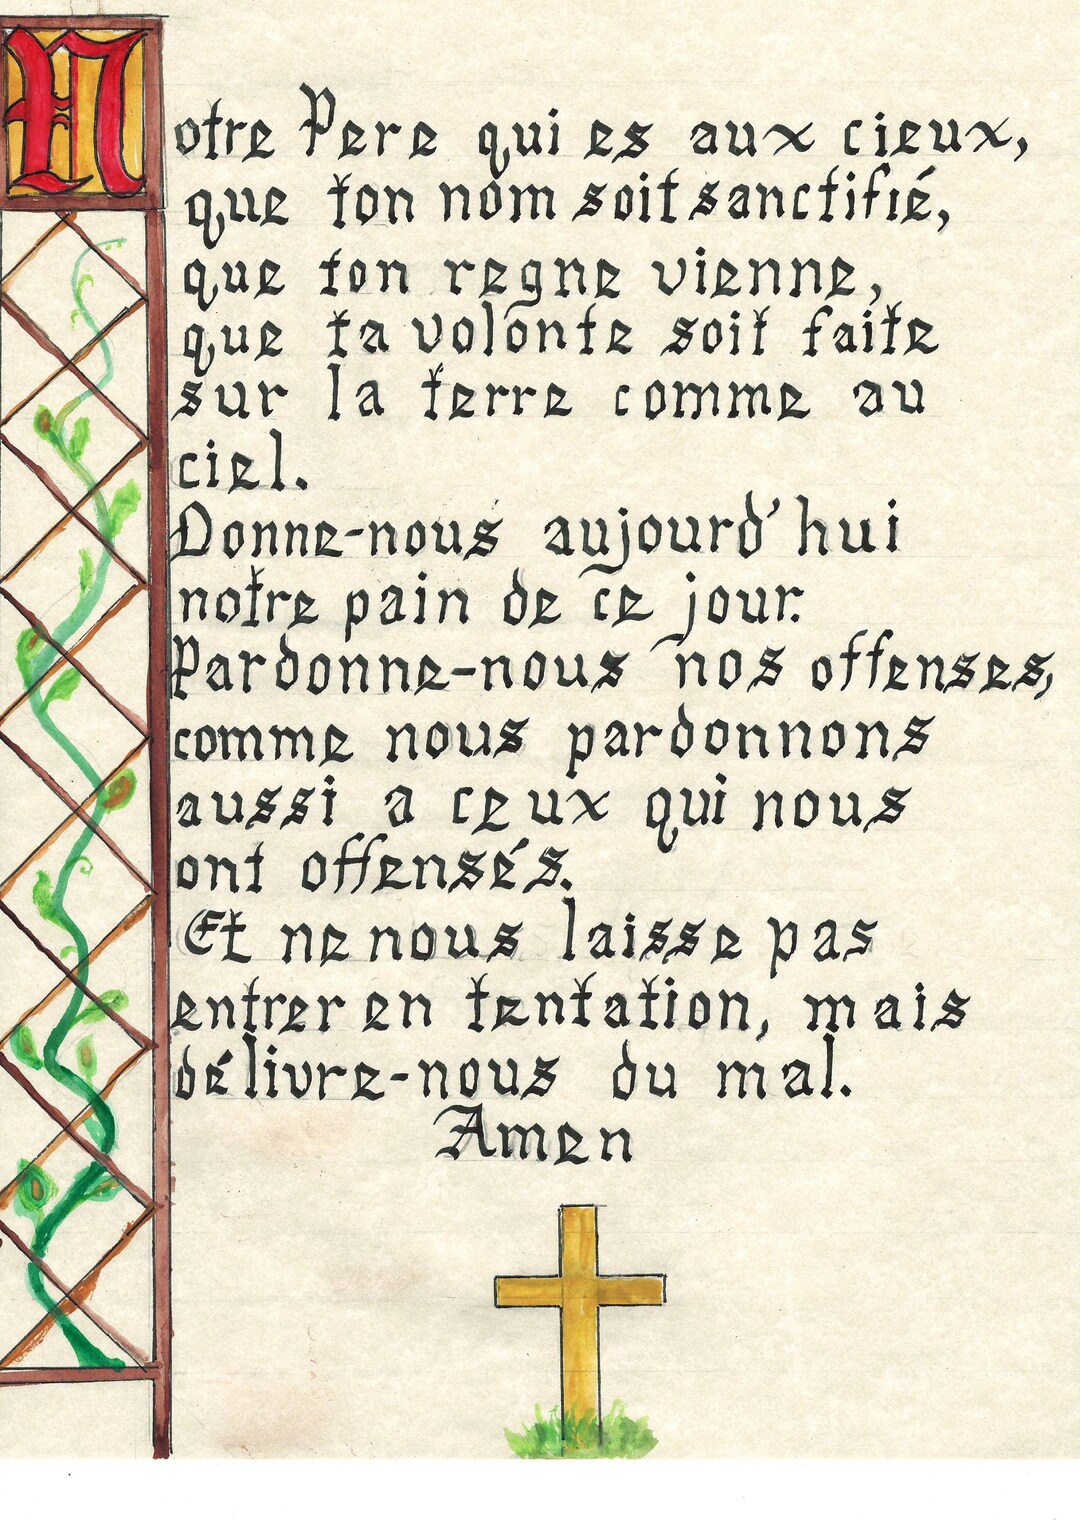 Notre Pere qui es aux cieux,
que ton nom soit sanctifié,
que ton regne vienne,
que ta volonte soit faite
sur la terre comme au
ciel.
Donne-nous aujourd'hui
notre pain de ce jour.
Pardonne-nous nos offenses,
comme nous pardonnons
aussi a ceux qui nous
ont offensés.
Et ne nous laisse pas
entrer en tentation, mais
délivre-nous du mal.
Amen